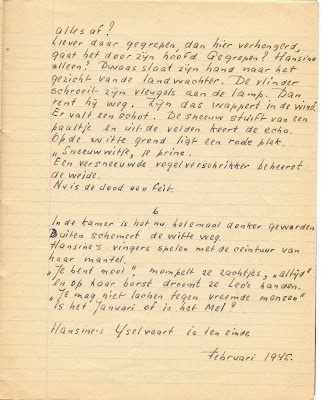 alles af?
Liever daar gegrepen, dan hier verhongerd,
gaat het door zijn hoofd. Gegrepen? Hansine
alleen? Dwaas slaat zijn hand naar het
gezicht van de landwachter. De vlinder
schroeit zijn vleugels aan de lamp. Dan
rent hij weg. Zijn das wappert in de wind.
Er valt een schot. De sneeuw stuift van een
paaltje en uit de velden keert de echo.
Op de witte grond ligt een rode plek.
"Sneeuwwitje, je prins.
Een versneeuwde vogelverschrikker beheerst
de weide.
Nu is de dood een feit.
6
In de kamer is het nu helemaal donker geworden
Buiten schemert de witte weg.
Hansine's vingers spelen met de ceintuur van
haar mantel.
"Je bent mooi", mompelt ze zachtjes, "altijd"
en op haar borst droomt ze Leo's handen.
"Je mag niet lachen tegen vreemde mensen"
Is het Januari of is het Mei?
Hansine's IJselvaart is ten einde
Februari 1945.